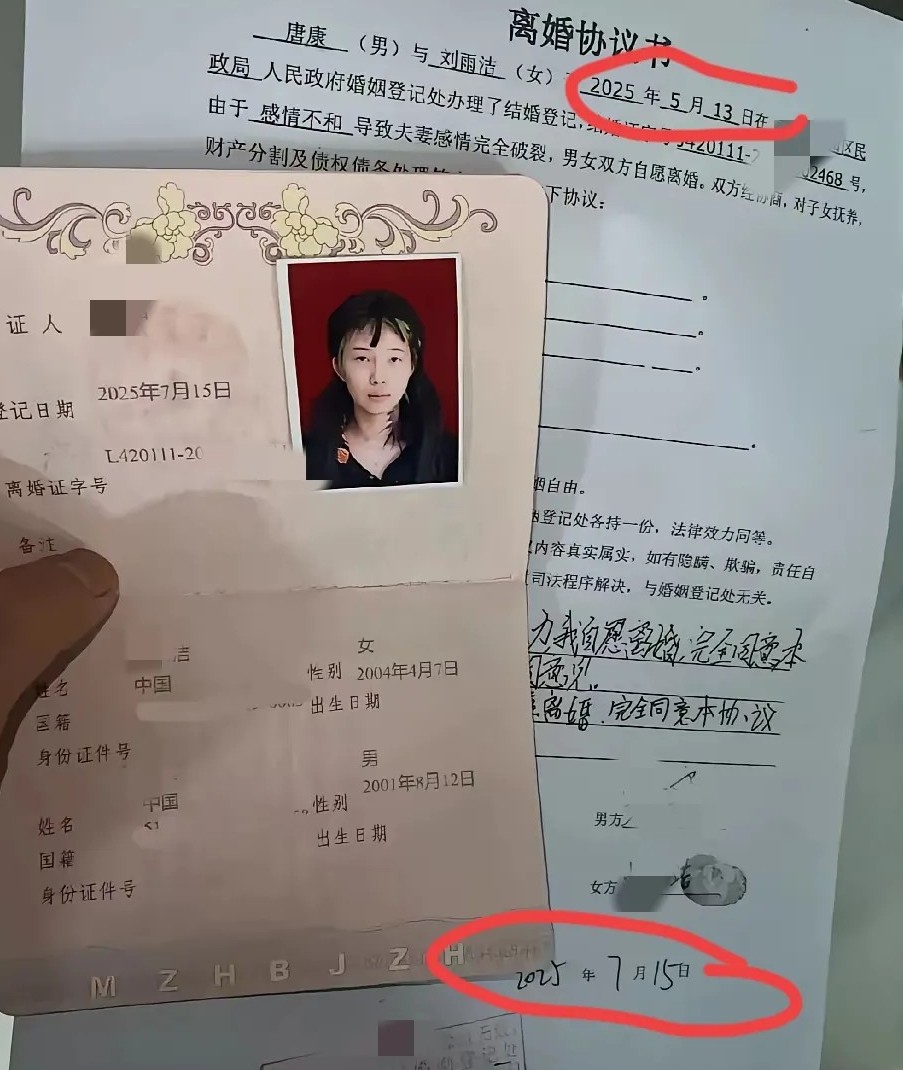 离婚协议书
唐康 （男）与 刘雨洁 （女） 2025 年 5 月 13 日在
政局 人民政府婚姻登记处办理了结婚登记, 420111- 02468 号,
由于 感情不和 导致夫妻感情完全破裂，男女双方自愿离婚。双方经协商，对子女抚养，
财产分割及债权债务处理 下协议：
。
。
。
。
姻自由。
登记处各持一份，法律效力同等。
内容真实属实，如有隐瞒、欺骗，责任自
司法程序解决，与婚姻登记处无关。
我自愿离婚、完全同意本
离婚、完全同意本协议
男方
女方 洁
2025 年 7 月 15 日
证 人
2025年7月15日
登记日期
L420111-20
离婚证字号
备注
洁 女
姓名 中国 性别 2004年4月7日
国籍 出生日期
身份证件号
男
中国 性别 2001年8月12日
姓名 出生日期
国籍
身份证件号
M Z H B J Z H